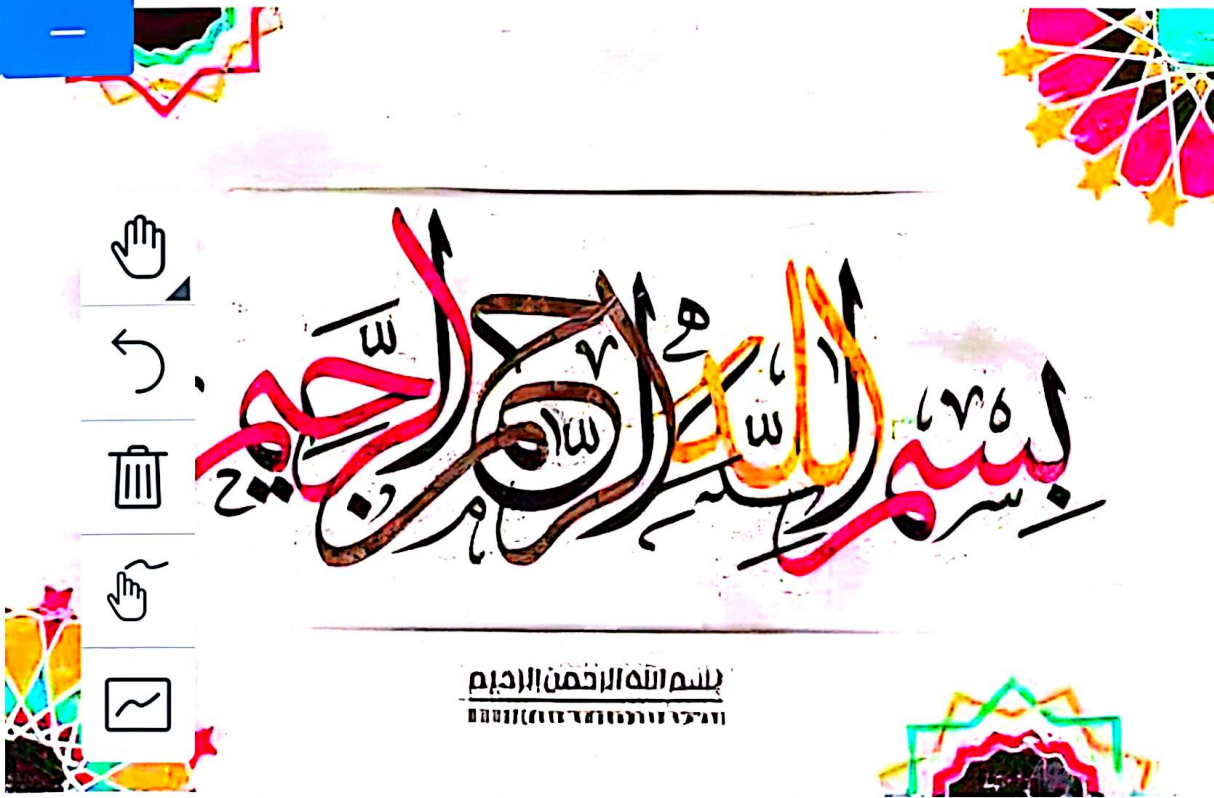 بِسْمِ اللّٰهِ الرَّحْمٰنِ الرَّحِيمِ
بسم الله الرحمن الرحيم